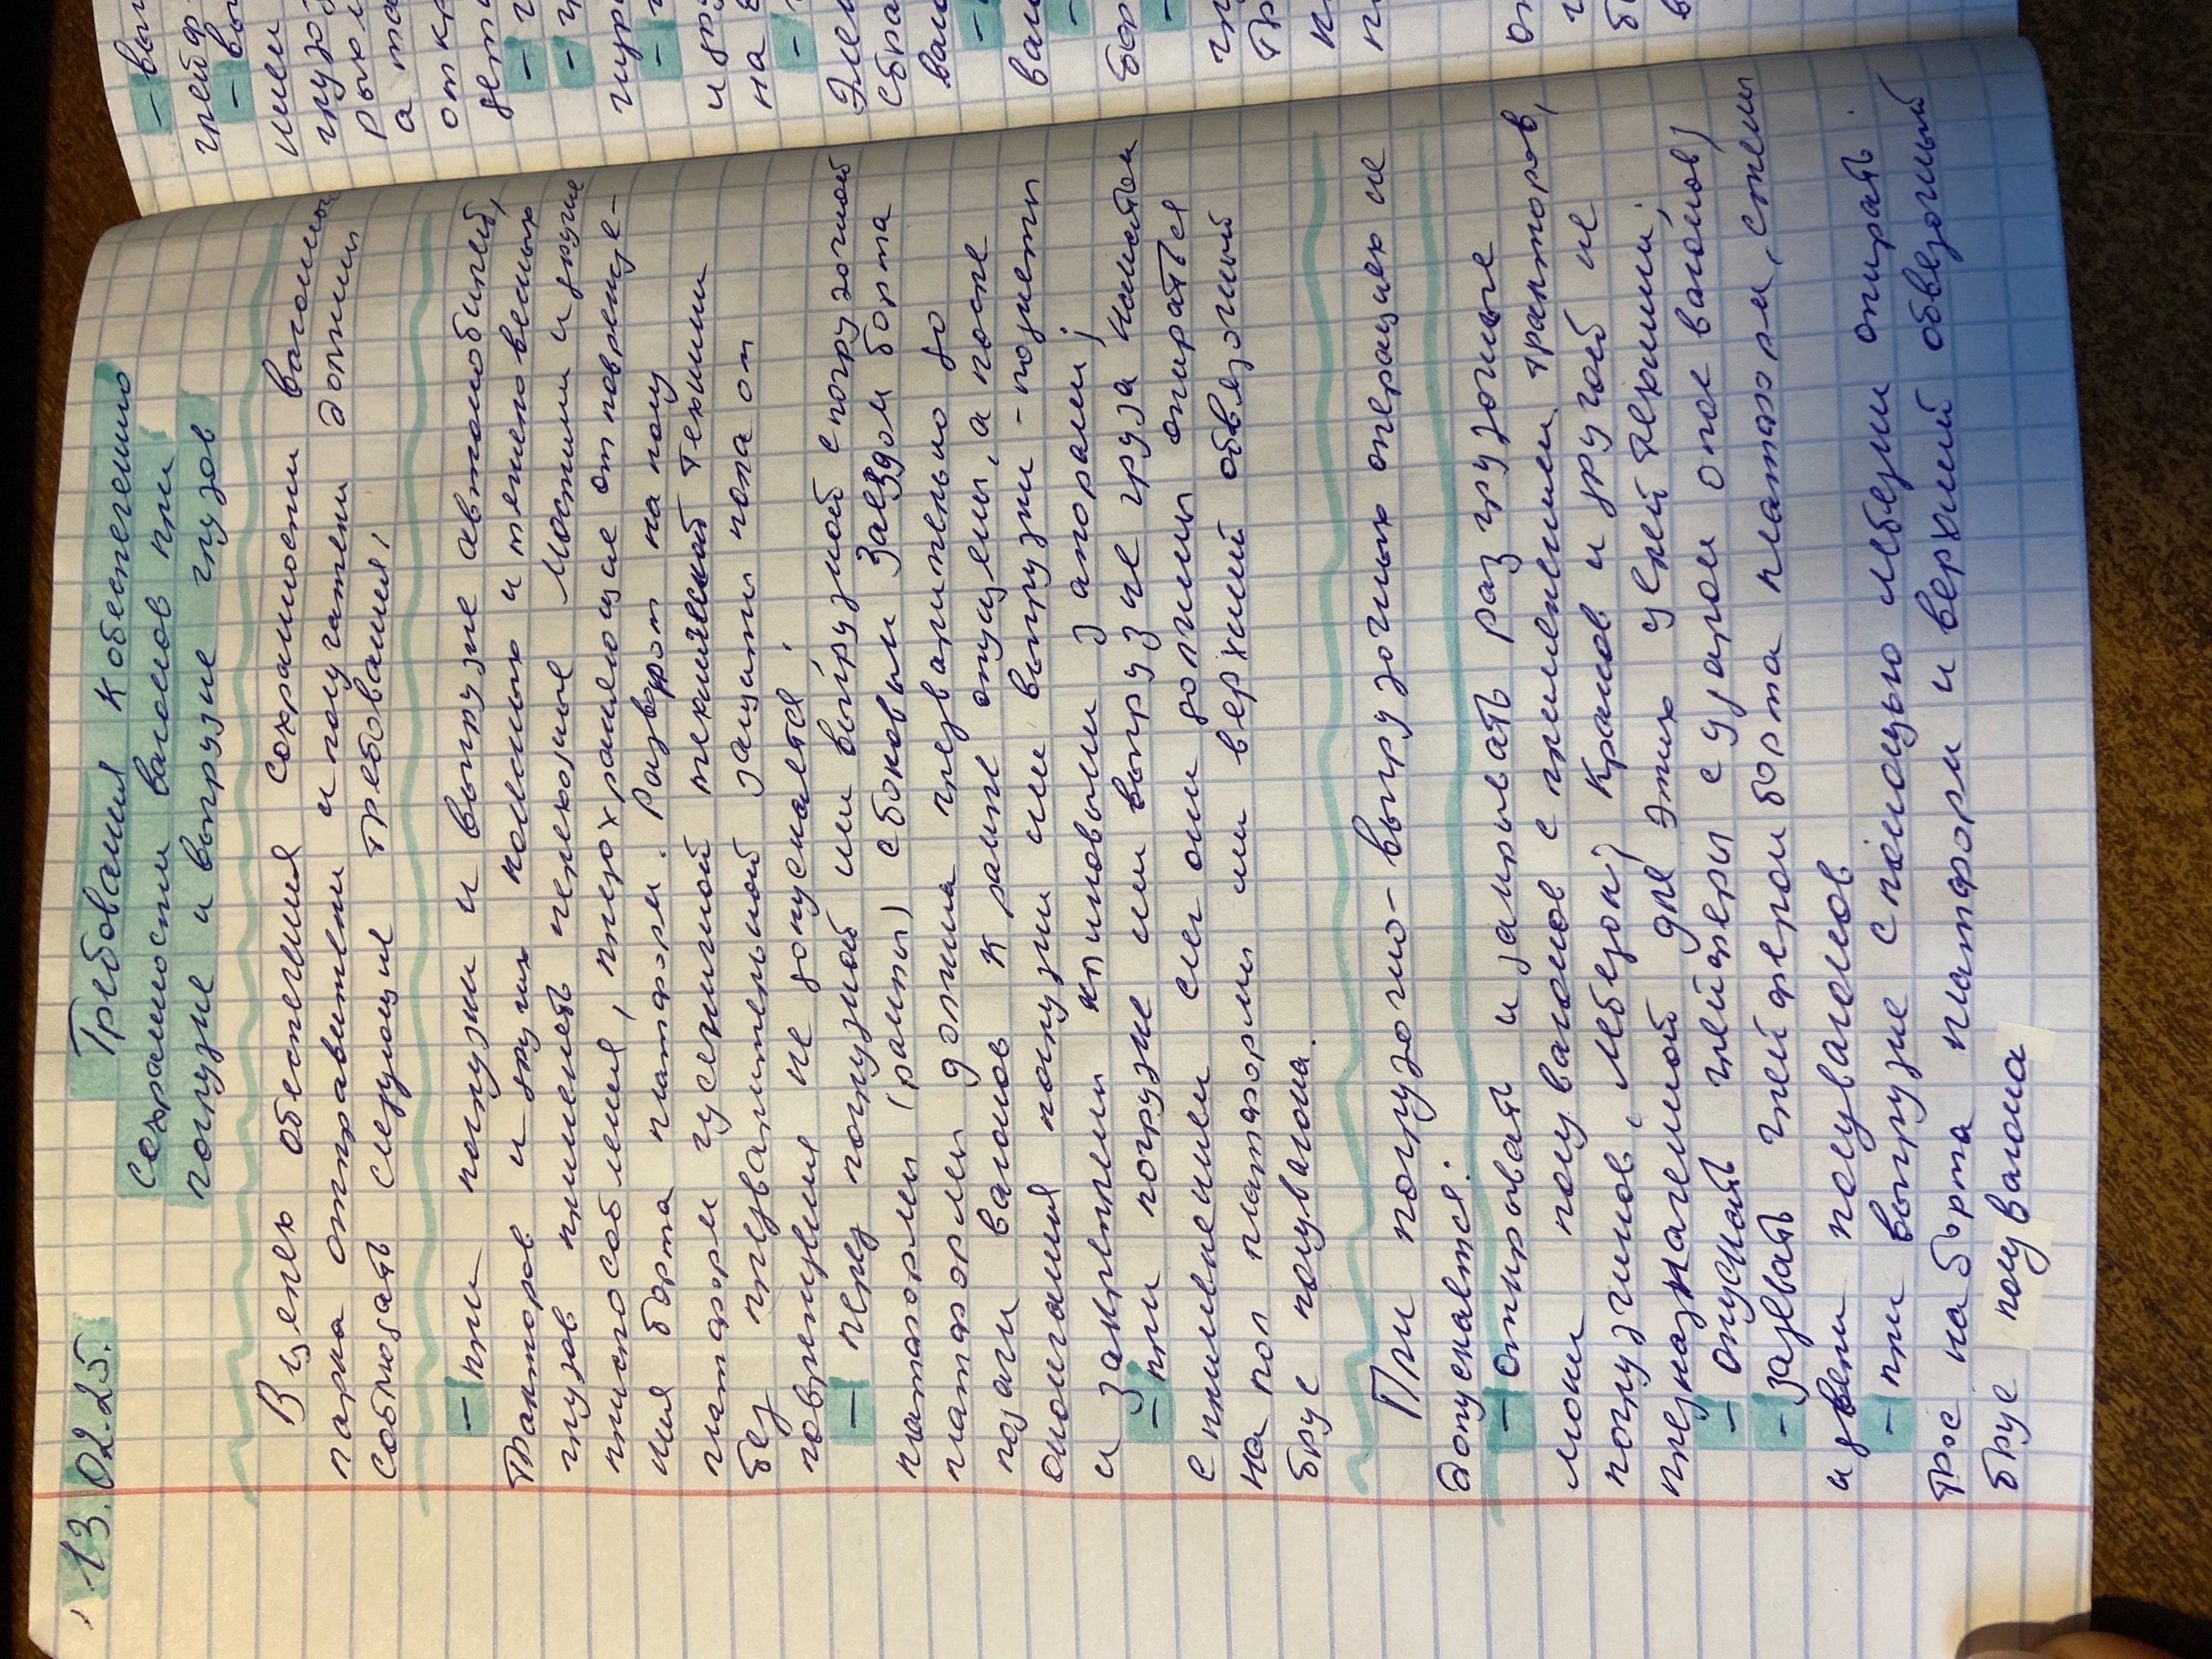 13.02.25.
Требования к обеспечению
сохранности вагонов при
погрузке и выгрузке грузов
В целях обеспечения сохранности вагонного
парка отправители и получатели должны
соблюдать следующие требования:
– при погрузки и выгрузке автомобилей,
тракторов и других колесных и тяжеловесных
грузов применять переходные мостики и другие
приспособления, предохраняющие от поврежде-
ния борта платформ. Разворот на полу
платформ гусеничной технический техники
без предварительной защити пола от
повреждения не допускается;
– перед погрузкой или выгрузкой с погрузочной
платформы (рампы) с боковым заездом борта
платформ должна предварительно до
подачи вагонов к рампе опущены, а после
окончания погрузки или выгрузки – подняты
и закреплены клиновыми запорами;
– при погрузке или выгрузке груза накатом
с применением слег они должны опираться
на пол платформы или верхний обвязочный
брус полувагона.
При погрузочно-выгрузочных операциях не
допускается:
– открывать и закрывать разгрузочные
люки полувагонов с применением тракторов,
погрузчиков, лебедок, кранов и другой не
предназначенной для этих целей техники;
– опускать грейферы с ударом о пол вагонов)
– задевать грейфером борта платформ, стены
и двери полувагонов
– при выгрузке с помощью лебедки опирать
трос на борта платформ и верхний обвязочный
брус полувагона
– вы
грейф
– вы
грузо
а та
отк
– г
– г
на
– 
Элем
сбра
вани
– 
ваг
–